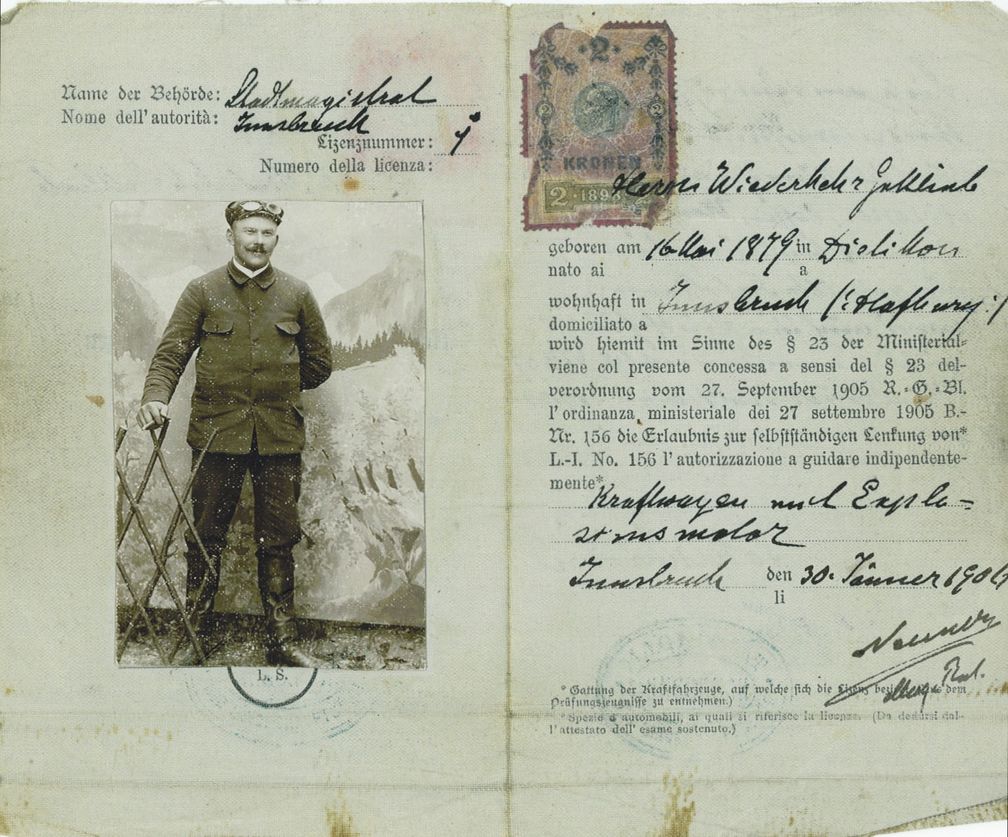 Name der Behörde: Stadtmagistrat
Nome dell'autorità: Innsbruck
Lizenznummer: 1
Numero della licenza:
2
2 2
KRONEN
2 · 1898
Herrn Wiederkehr Gottlieb
geboren am 16 Mai 1879 in Dietikon
nato ai a
wohnhaft in Innsbruck (: Hofburg :)
domiciliato a
wird hiemit im Sinne des § 23 der Ministerial-
viene col presente concessa a sensi del § 23 del-
verordnung vom 27. September 1905 R.-G.-Bl.
l'ordinanza ministeriale dei 27 settembre 1905 B.-
Nr. 156 die Erlaubnis zur selbstständigen Lenkung von*
L.-I. No. 156 l'autorizzazione a guidare indipendente-
mente*
Kraftwagen mit Explo-
sionsmotor
Innsbruck den 30. Jänner 1906
li
L. S.
* Gattung der Kraftfahrzeuge, auf welche sich die Lizenz bezieht dem
Prüfungszeugnisse zu entnehmen.)
* Spezie d'automobili, ai quali si riferisce la licenza. (Da desumersi dal-
l'attestato dell'esame sostenuto.)